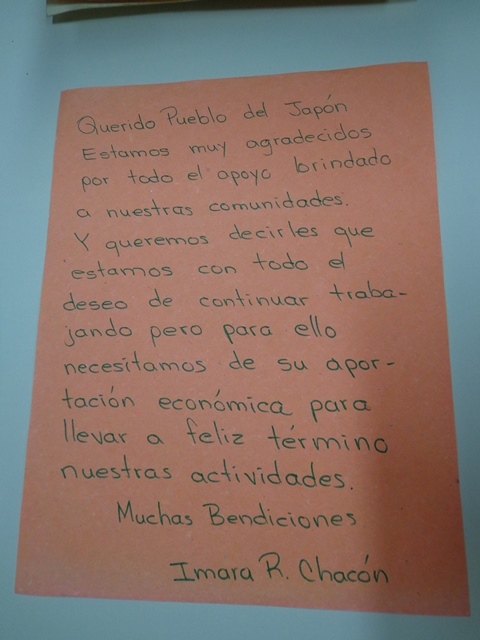 Querido Pueblo del Japón
Estamos muy agradecidos
por todo el apoyo brindado
a nuestras comunidades.
Y queremos decirles que
estamos con todo el
deseo de continuar traba-
jando pero para ello
necesitamos de su apor-
tación económica para
llevar a feliz término
nuestras actividades.
Muchas Bendiciones
Imara R. Chacón